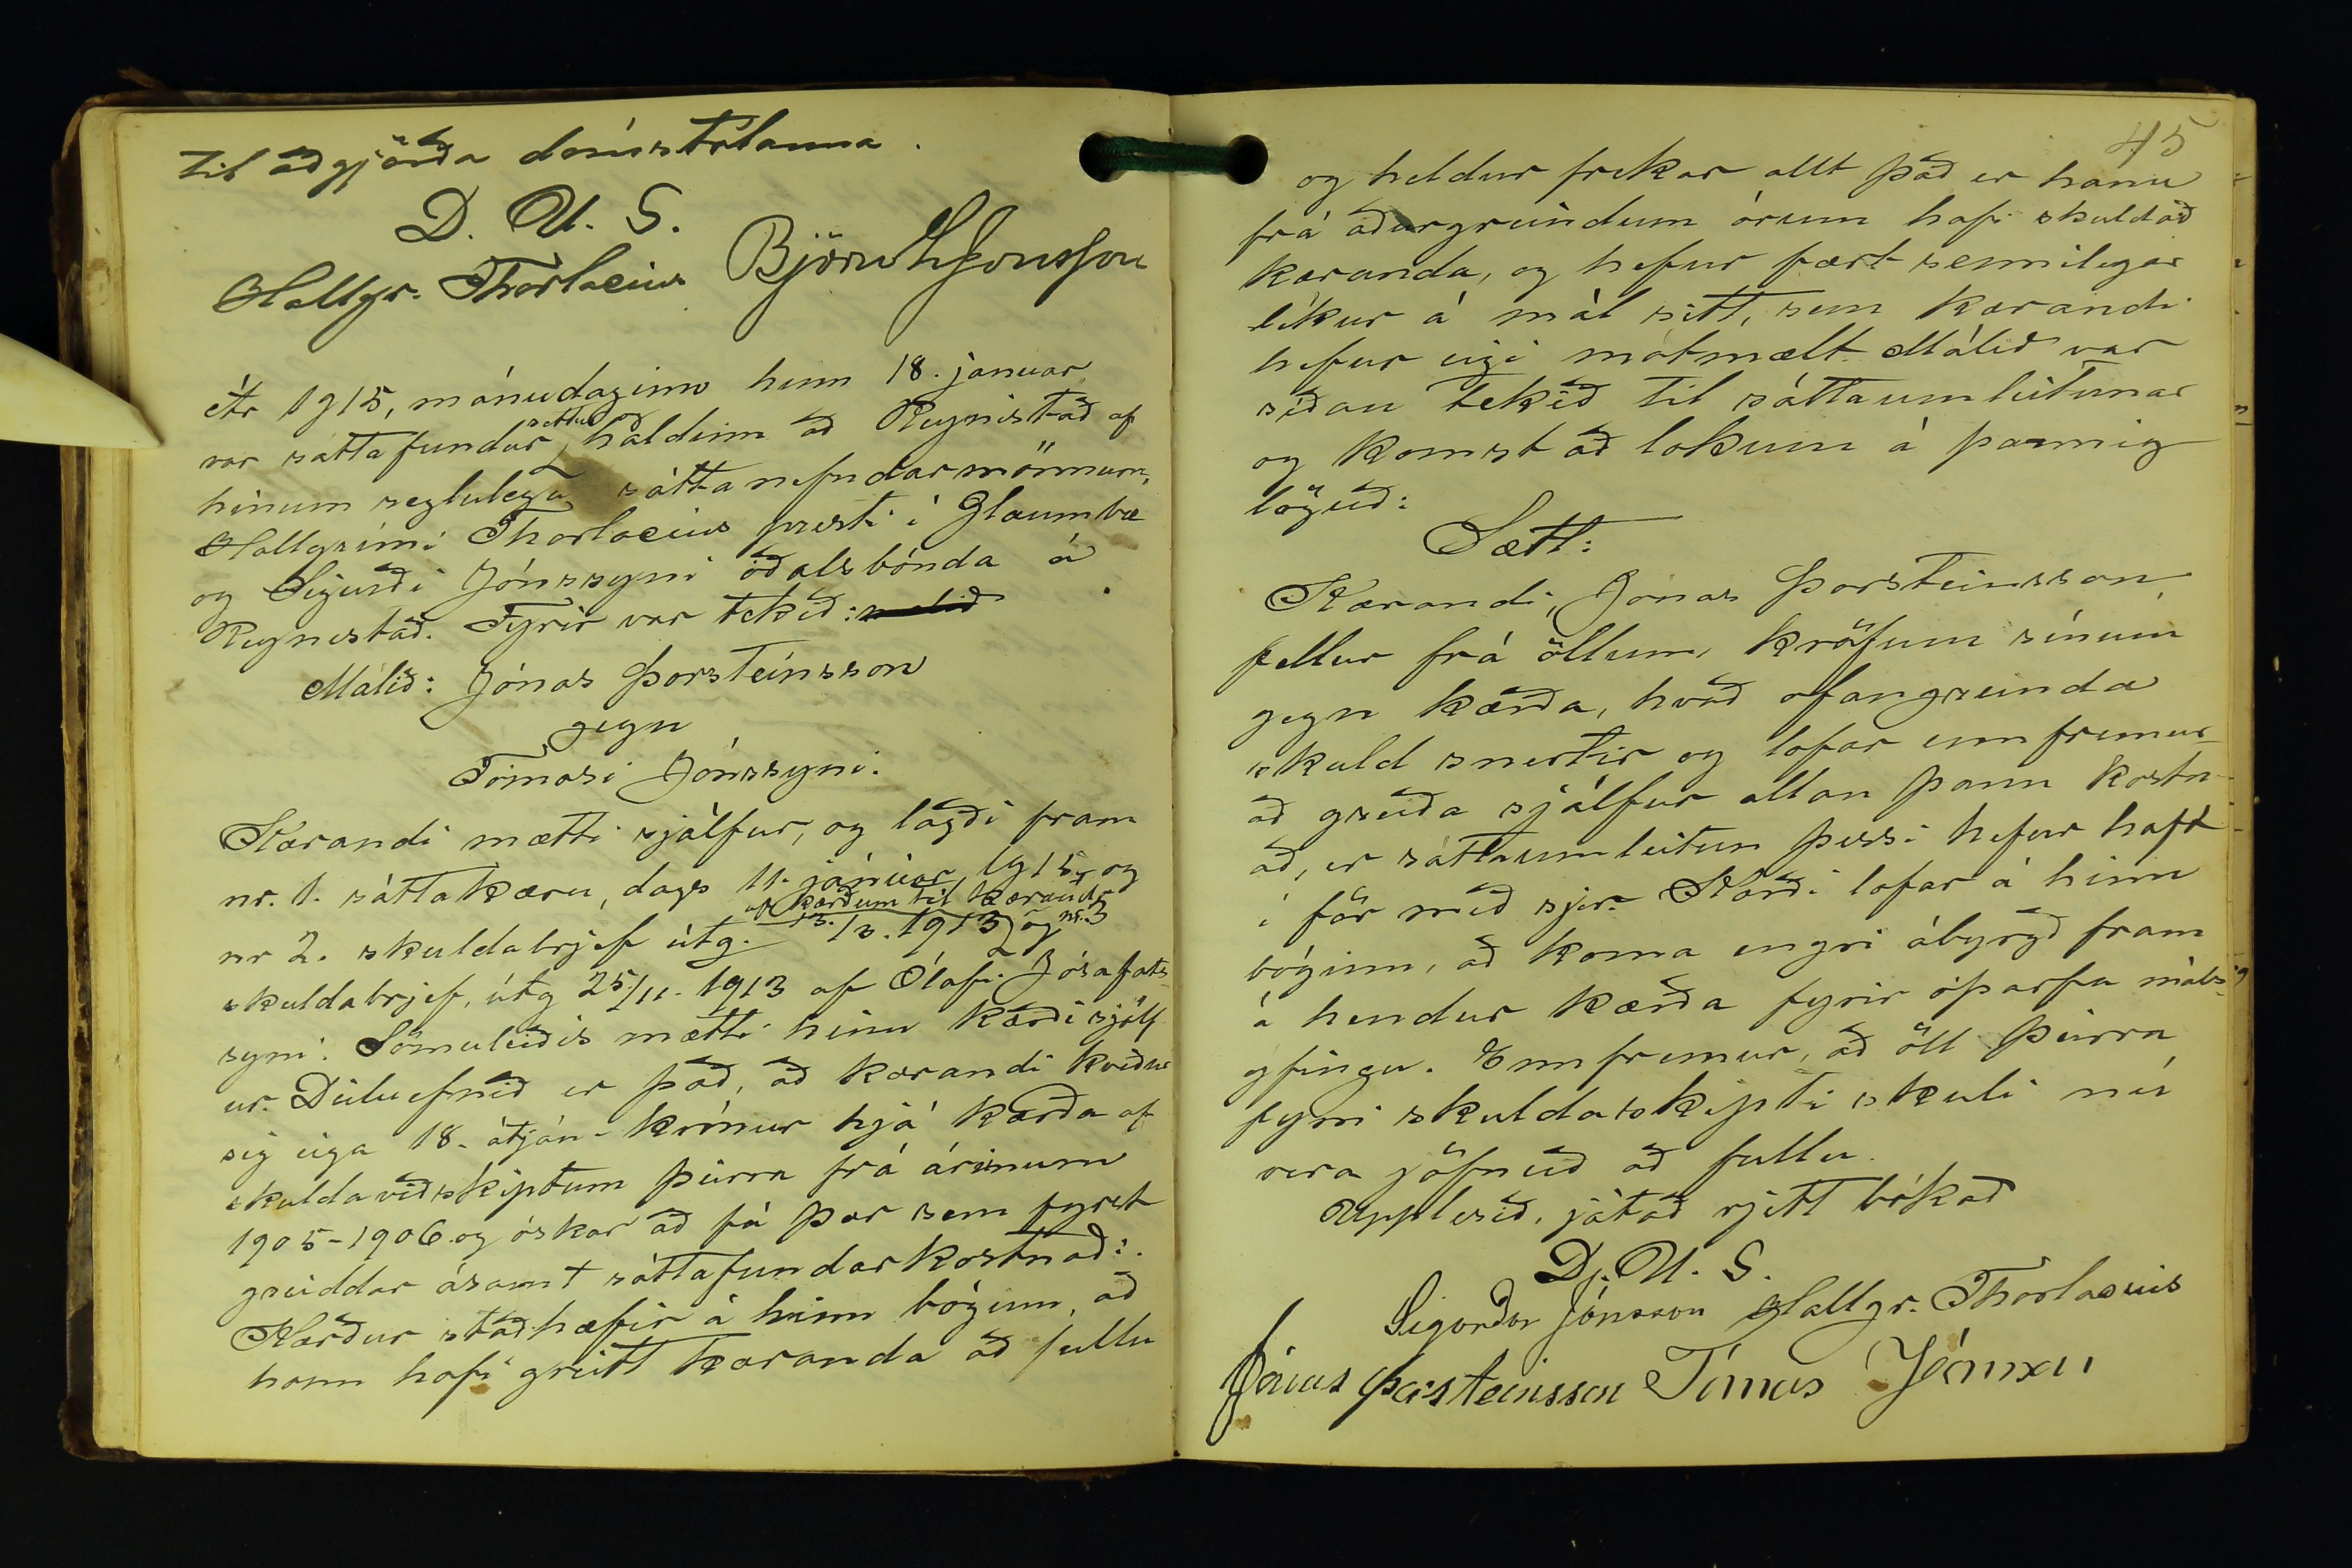 til aðgjörða dómstólanna.
D. U. S.
Hallgr. Thorlacius Björn L Jónsson
Ár 1915, mánudaginn hinn 18. januar,
var sáttafundur settur og haldinn að Reynistað af
hinum reglulegu sáttanefndarmönnum,
Hallgrími Thorlacius presti í Glaumbæ
og Sigurði Jónssyni óðalsbónda á
Reynistað. Fyrir var tekið:
Málið: Jónas Þorsteinsson
gegn
Tómasi Jónssyni.
Kærandi mætti sjálfur, og lagði fram
nr. 1. sáttakæru, dags 11. janúar, 1915, og
nr 2. skuldabrjef útg. af kærðum til kæranda 13./3. 1913 og nr. 3
skuldabrjef, útg 25/11. 1913 af Ólafi Jósafats
syni. Sömuleiðis mætti hinn kærði sjálf
ur. Deiluefnið er það, að kærandi kveður
sig eiga 18. átján - krónur hjá kærða af
skuldaviðskiptum þeirra frá árinum
1905-1906. og óskar að fá þær sem fyrst
greiddar ásamt sáttafundarkostnaði.
Kærður staðhæfir á hinn bóginn, að
hann hafi greitt kæranda að fullu
45
og heldur frekar allt það er hann
frá áðurgreindum árum hafi skuldað
kæranda, og hefur fært sennilegar
líkur á mál sitt, sem kærandi
hefur eigi mótmælt. Málið var
síðan tekið til sáttaumleitunar
og komst að lokum á þannig
löguð:
Sætt:
Kærandi, Jónas Þorsteinsson,
fellur frá öllum kröfum sínum
gegn kærða, hvað ofangreinda
skuld snertir og lofar enn fremur
að greiða sjálfur allan þann kostn-
að, er sáttaumleitun þessi hefur haft
í för með sjer. Kærði lofar á hinn
bóginn, að koma engri ábyrgð fram
á hendur kærða fyrir óþarfa máls-
yfingu. Enn fremur, að öll þeirra
fyrri skuldaskipti skuli nú
vera jöfnuð að fullu.
Upplesið, játað rjett bókað
D. U. S.
Sigurður Jónsson Hallgr. Thorlacius
Jónas Þorsteinsson Tómas Jónsson